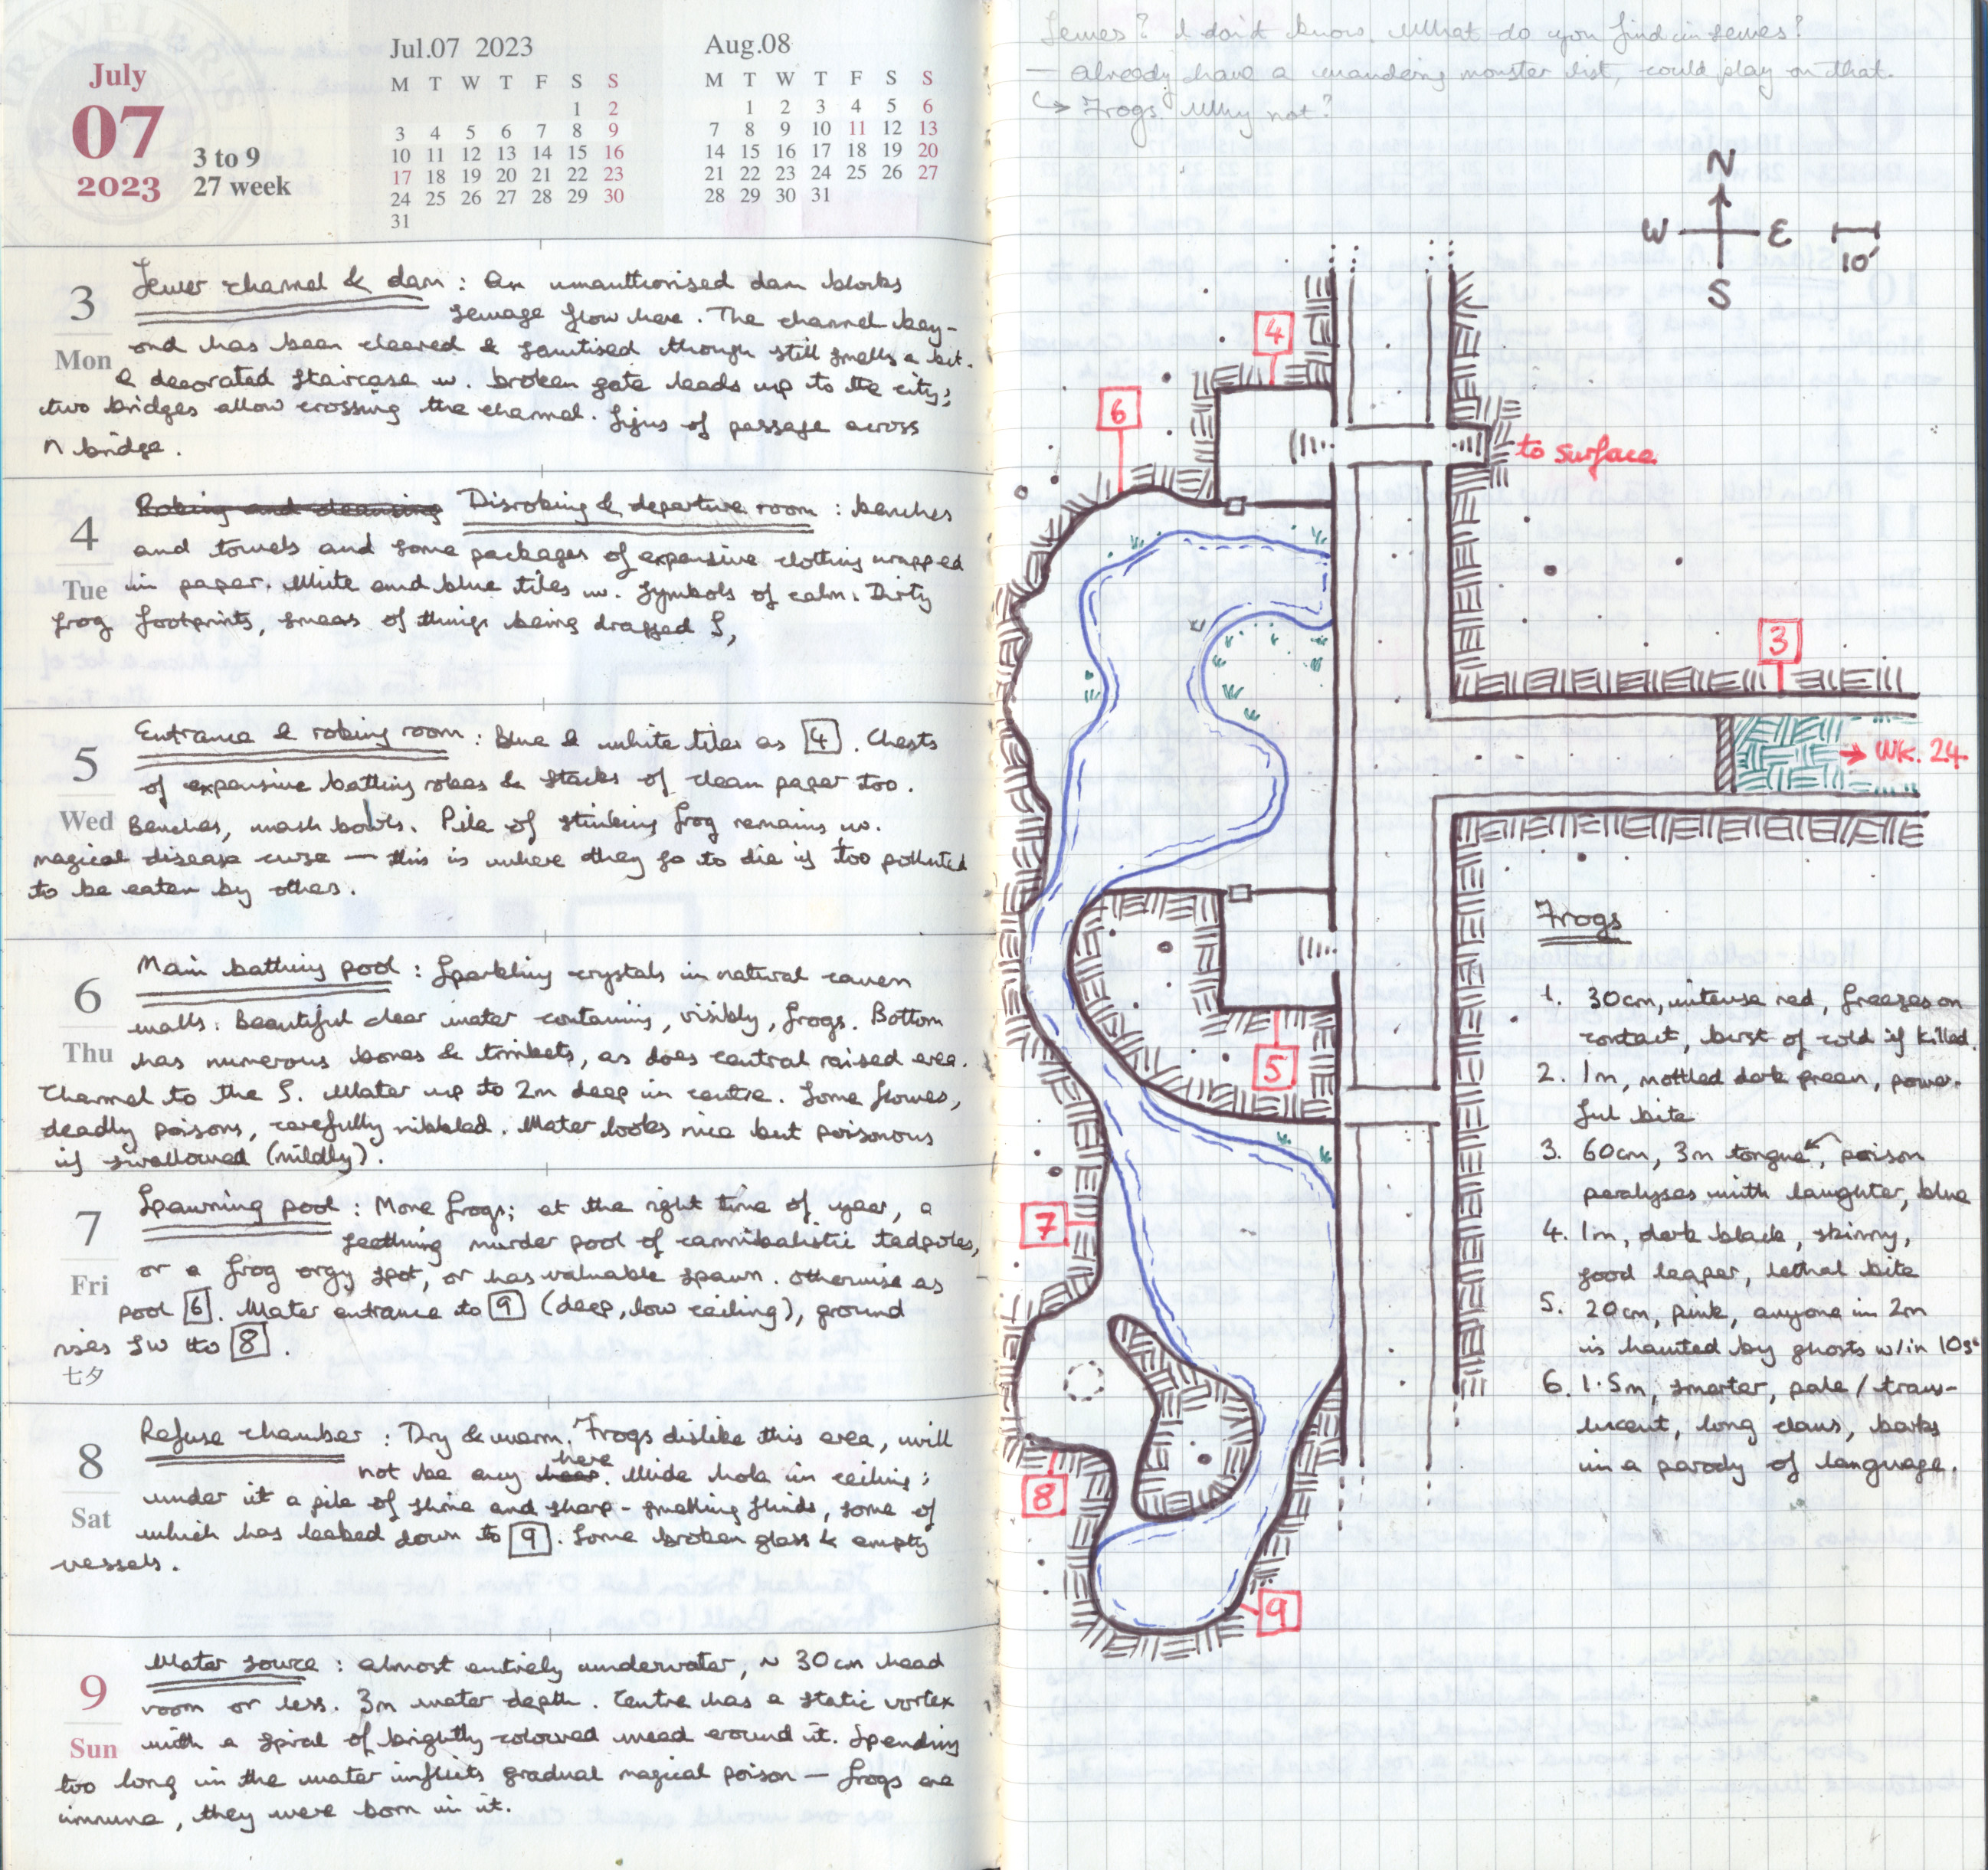 July
07
2023
3 to 9
27 week
Jul.07 2023
M T W T F S S
1 2
3 4 5 6 7 8 9
10 11 12 13 14 15 16
17 18 19 20 21 22 23
24 25 26 27 28 29 30
31
Aug.08
M T W T F S S
1 2 3 4 5 6
7 8 9 10 11 12 13
14 15 16 17 18 19 20
21 22 23 24 25 26 27
28 29 30 31
3
Mon
Sewer channel & dam: An unauthorised dam blocks
sewage flow here. The channel bey-
ond has been cleared & sanitised though still smells a bit.
A decorated staircase w. broken gate leads up to the city;
two bridges allow crossing the channel. Signs of passage across
N bridge.
4
Tue
Robing and cleansing Disrobing & departure room: benches
and towels and some packages of expensive clothing wrapped
in paper. White and blue tiles w. symbols of calm. Dirty
frog footprints, smears of things being dragged S,
5
Wed
Entrance & robing room: Blue & white tiles as 4. Chests
of expensive bathing robes & stacks of clean paper too.
Benches, wash bowls. Pile of stinking frog remains w.
magical disease curse — this is where they go to die if too polluted
to be eaten by others.
6
Thu
Main bathing pool: Sparkling crystals in natural cavern
walls. Beautiful clear water containing, visibly, frogs. Bottom
has numerous bones & trinkets, as does central raised area.
Channel to the S. Water up to 2m deep in centre. Some flowers,
deadly poisons, carefully nibbled. Water looks nice but poisonous
if swallowed (mildly).
7
Fri
七夕
Spawning pool: More frogs; at the right time of year, a
seething murder pool of cannibalistic tadpoles,
or a frog orgy spot, or has valuable spawn. Otherwise as
pool 6. Water entrance to 9 (deep, low ceiling), ground
rises SW to 8.
8
Sat
Refuse chamber: Dry & warm. Frogs dislike this area, will
not be any here. Wide hole in ceiling;
under it a pile of slime and sharp-smelling fluids, some of
which has leaked down to 9. Some broken glass & empty
vessels.
9
Sun
Water source: Almost entirely underwater, ~ 30cm head
room or less. 3m water depth. Centre has a static vortex
with a spiral of brightly-coloured weed around it. Spending
too long in the water inflicts gradual magical poison — frogs are
immune, they were born in it.
Sewers? I don't know. What do you find in sewers?
— Already have a wandering monster list, could play on that.
↳ Frogs. Why not?
N
W E
S
10'
4
6
to surface
3
→ WK. 24
5
7
8
9
Frogs
1. 30cm, intense red, freezes on
contact, burst of cold if killed.
2. 1m, mottled dark green, power-
ful bite
3. 60cm, 3m tongue, poison
paralyses with laughter, blue
4. 1m, dark black, skinny,
good leaper, lethal bite
5. 20cm, pink, anyone in 2m
is haunted by ghosts w/in 10s
6. 1.5m, smarter, pale / trans-
lucent, long claws, barks
in a parody of language.